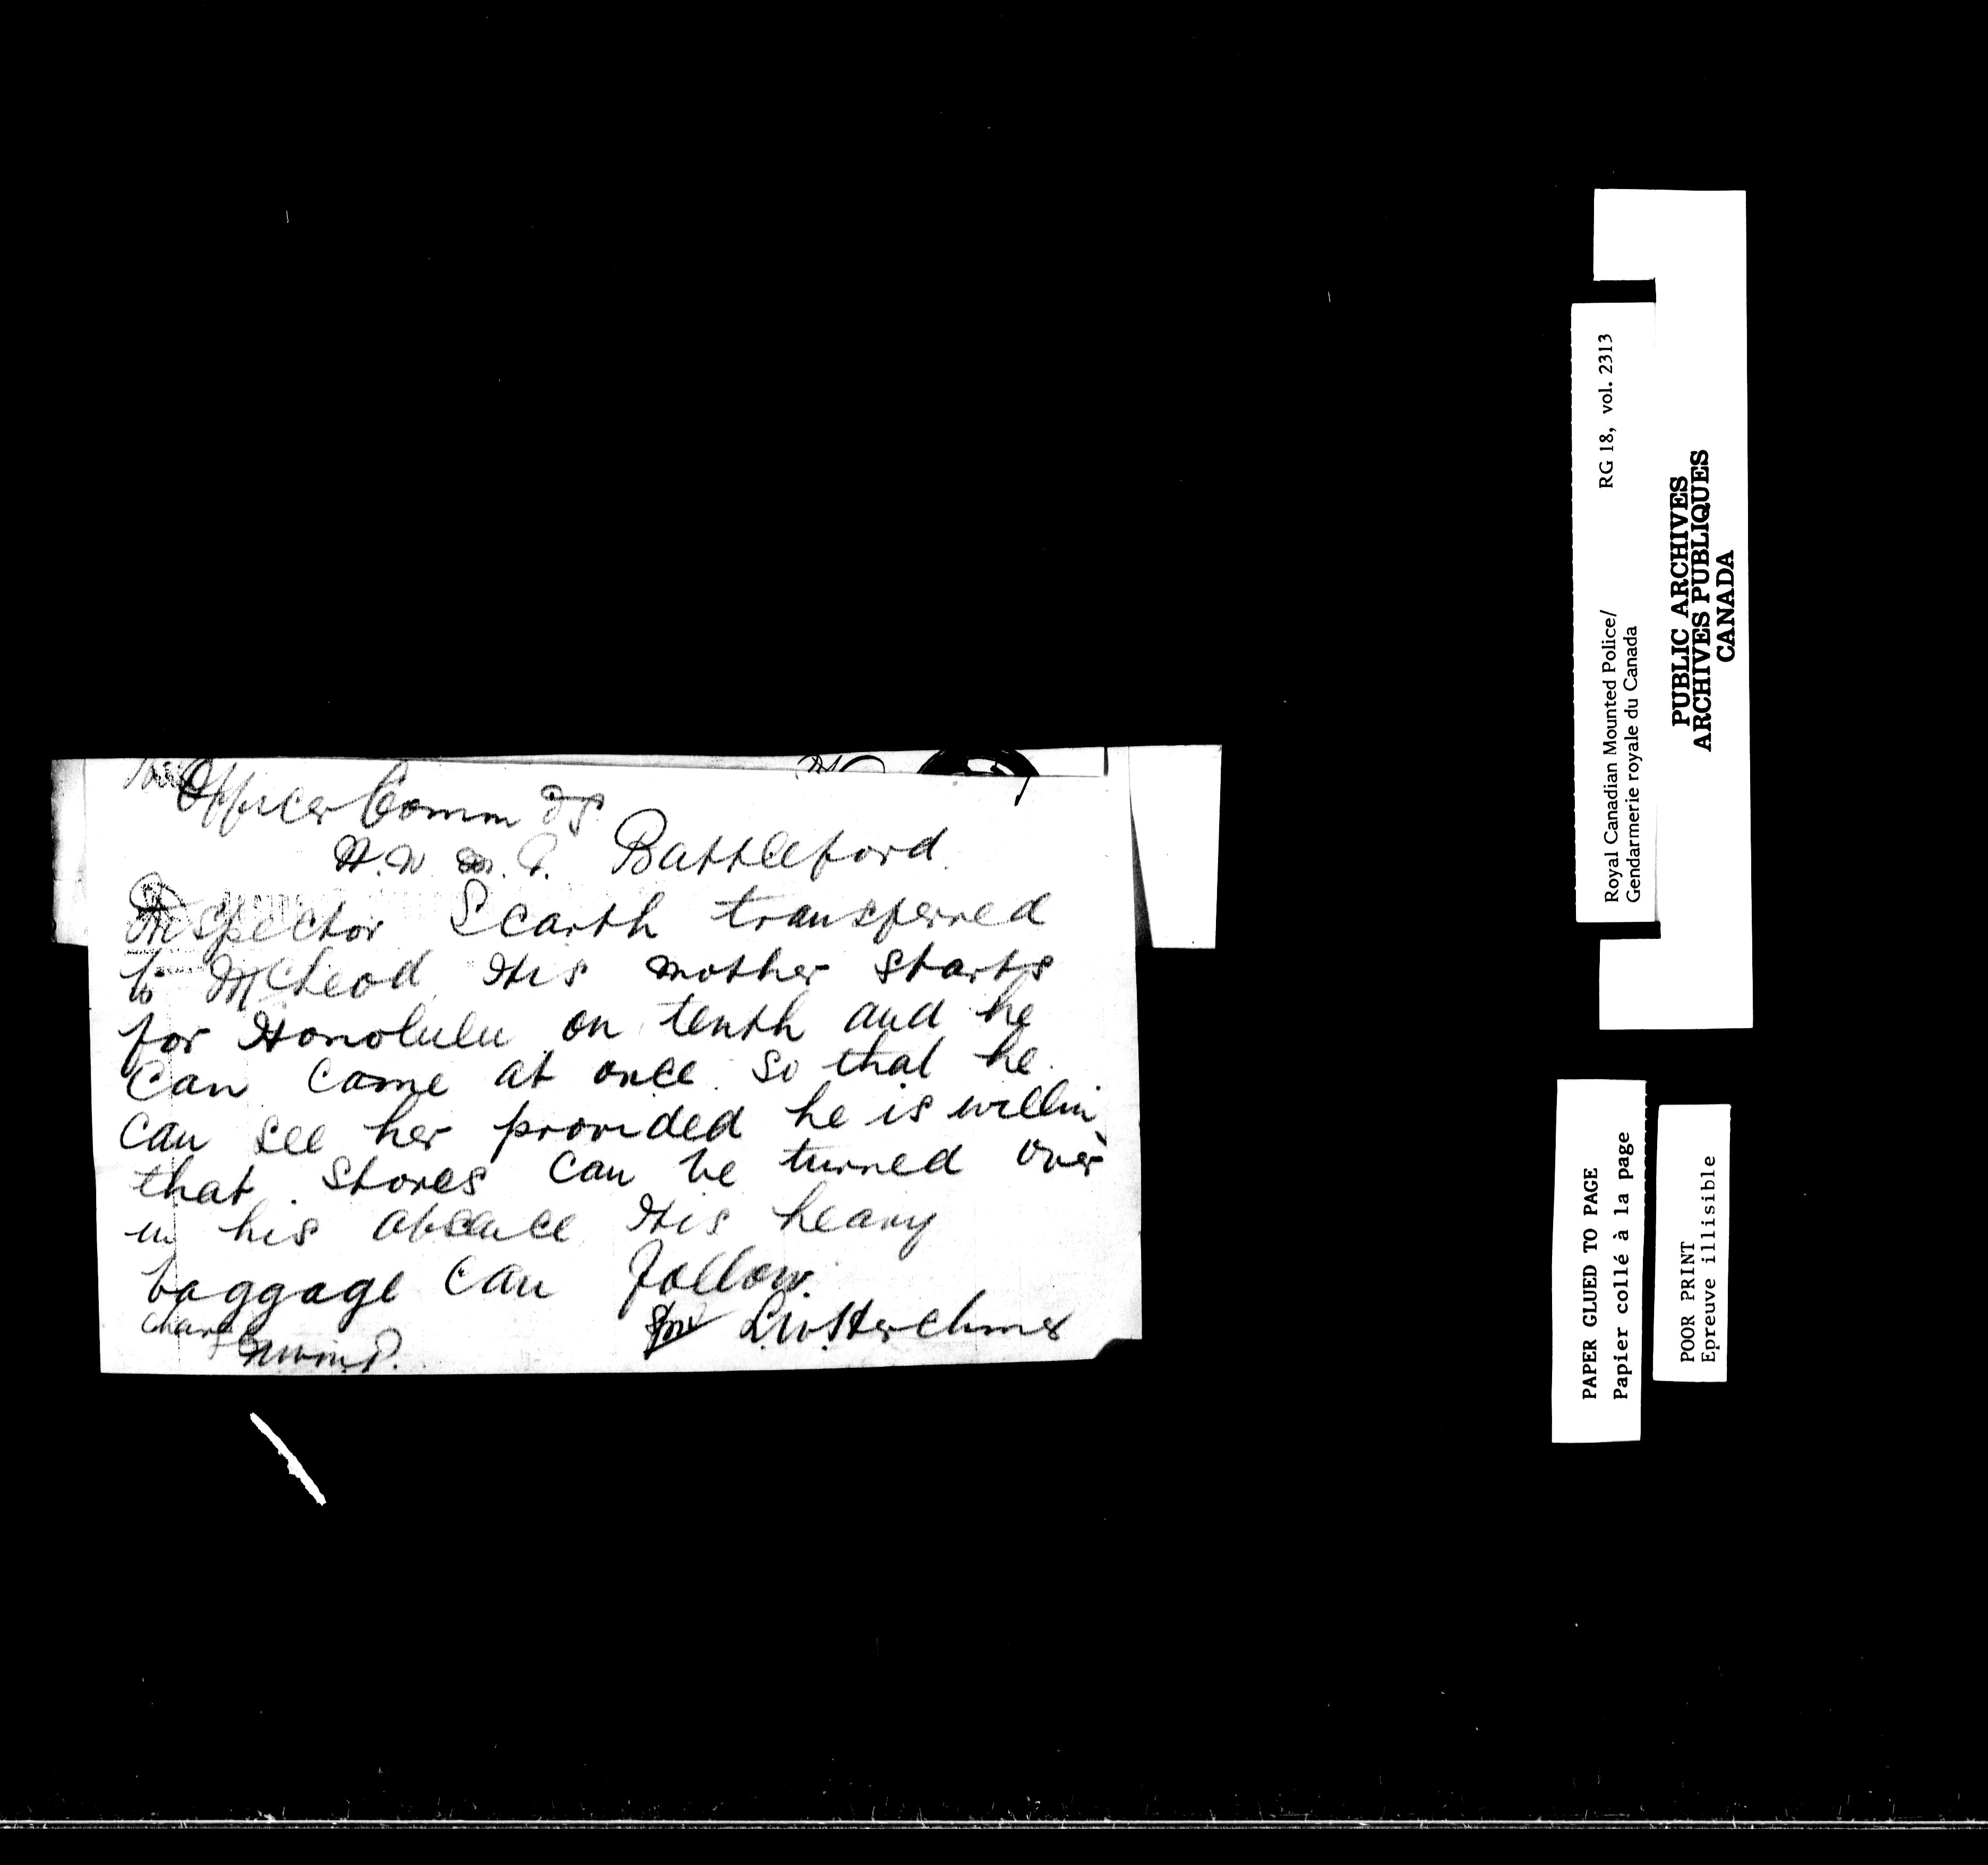 Officer Commdg
N.W.M.P. Battleford.
Inspector Scarth transferred
to McLeod His mother starts
for Honolulu on tenth and he
can come at once so that he
can see her provided he is willin
that stores can be turned over
in his absence His heavy
baggage can follow.
L.W. Herchmer
Charge
N.W.M.P.
Royal Canadian Mounted Police/ RG 18, vol. 2313
Gendarmerie royale du Canada
PUBLIC ARCHIVES
ARCHIVES PUBLIQUES
CANADA
PAPER GLUED TO PAGE
Papier collé à la page
POOR PRINT
Epreuve illisible